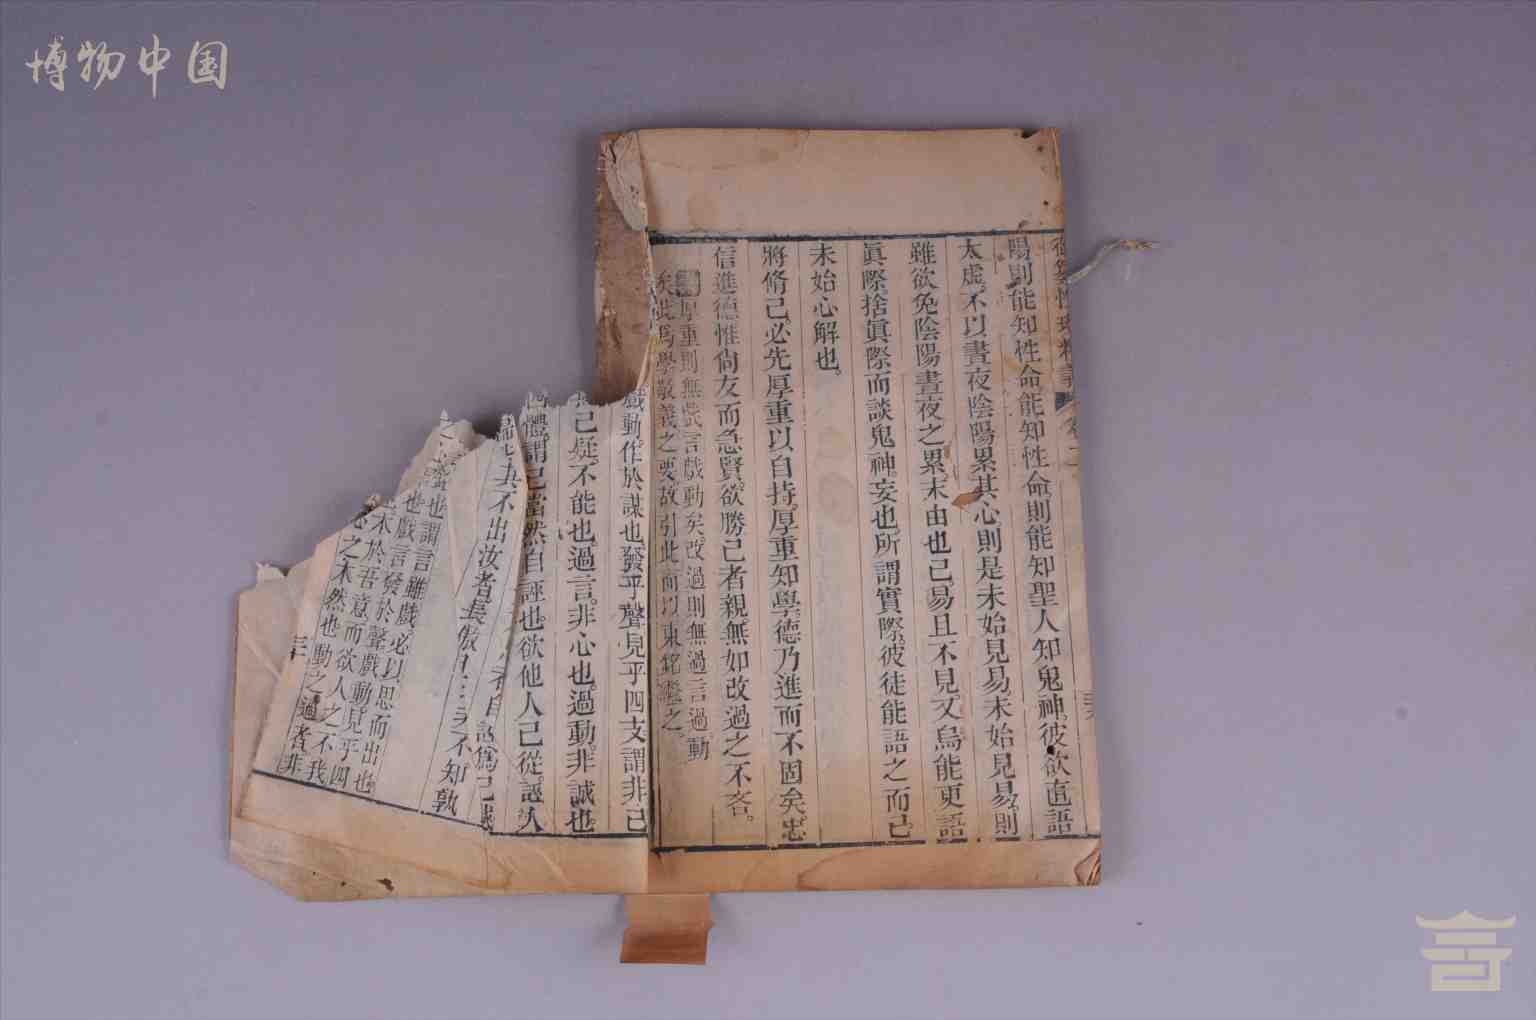 博物中国
御纂性理精義 卷二
陽則能知性命能知性命則能知聖人知鬼神彼欲直語
太虛不以晝夜陰陽累其心則是未始見易未始見易則
雖欲免陰陽晝夜之累末由也已易且不見又烏能更語
眞際捨眞際而談鬼神妄也所謂實際彼徒能語之而已
未始心解也。
將脩己必先厚重以自持厚重知學德乃進而不固矣忠
信進德惟尙友而急賢欲勝己者親無如改過之不吝。
厚重則無戲言戲動矣改過則無過言過動
矣此爲學最義之要故引此而以東銘繼之。
戲動作於謀也發乎聲見乎四支謂非己
己疑不能也過言非心也過動非誠也
體謂己當然自誣也欲他人己從誣人
其不出汝者長傲且 不知孰
也謂言雖戲必以思而出也
也戲言發於聲戲動見乎四
未於吾意而欲人之不我
之本然也動之過者非